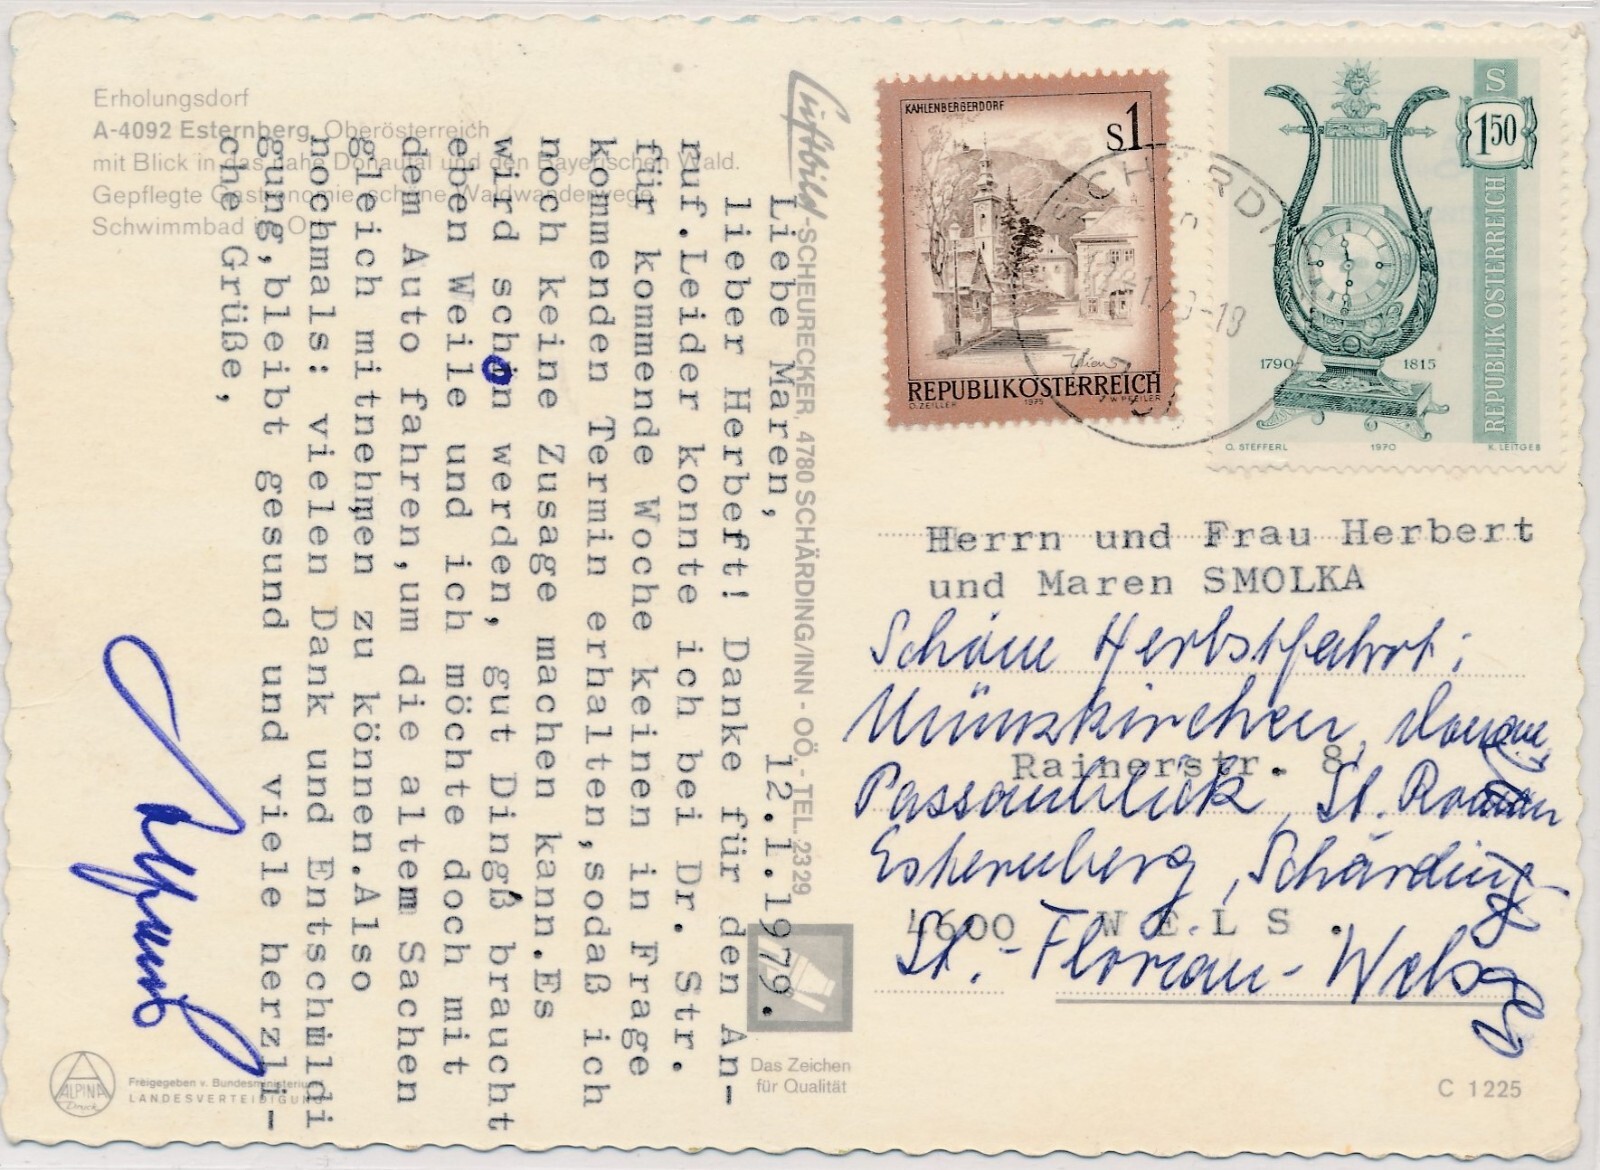 Erholungsdorf
A-4092 Esternberg, Oberösterreich
mit Blick in das nahe Donautal und den Bayerischen Wald.
Gepflegte Gastronomie, schöne Waldwanderwege
Schwimmbad in O
12.1.1979.
Liebe Maren,
lieber Herbert! Danke für den An-
ruf.Leider konnte ich bei Dr. Str.
für kommende Woche keinen in Frage
kommenden Termin erhalten,sodaß ich
noch keine Zusage machen kann.Es
wird schon werden, gut Ding braucht
eben Weile und ich möchte doch mit
dem Auto fahren,um die altem Sachen
gleich mitnehmen zu können.Also
nochmals: vielen Dank und Entschmildi
gung,bleibt gesund und viele herzli-
che Grüße,
Luftbild-SCHEURECKER, 4780 SCHÄRDING/INN - OÖ, - TEL. 2329
KAHLENBERGERDORF
S1
Wien
REPUBLIK ÖSTERREICH
O. ZEILLER 1975 W. PFEILER
S
150
REPUBLIK ÖSTERREICH
1790- 1815
O. STEFFERL 1970 K. LEITGEB
SCHÄRDI
-18
Herrn und Frau Herbert
und Maren SMOLKA
Schöne Herbstfahrt:
Münzkirchen, Donau,
Rainerstr. 8
Passaublick, St. Roman
Esternberg, Schärding
4600 W E L S .
St.-Florian-Wels
Das Zeichen
für Qualität
ALPINA
Druck
Freigegeben v. Bundesministerium
LANDESVERTEIDIGUNG
C 1225